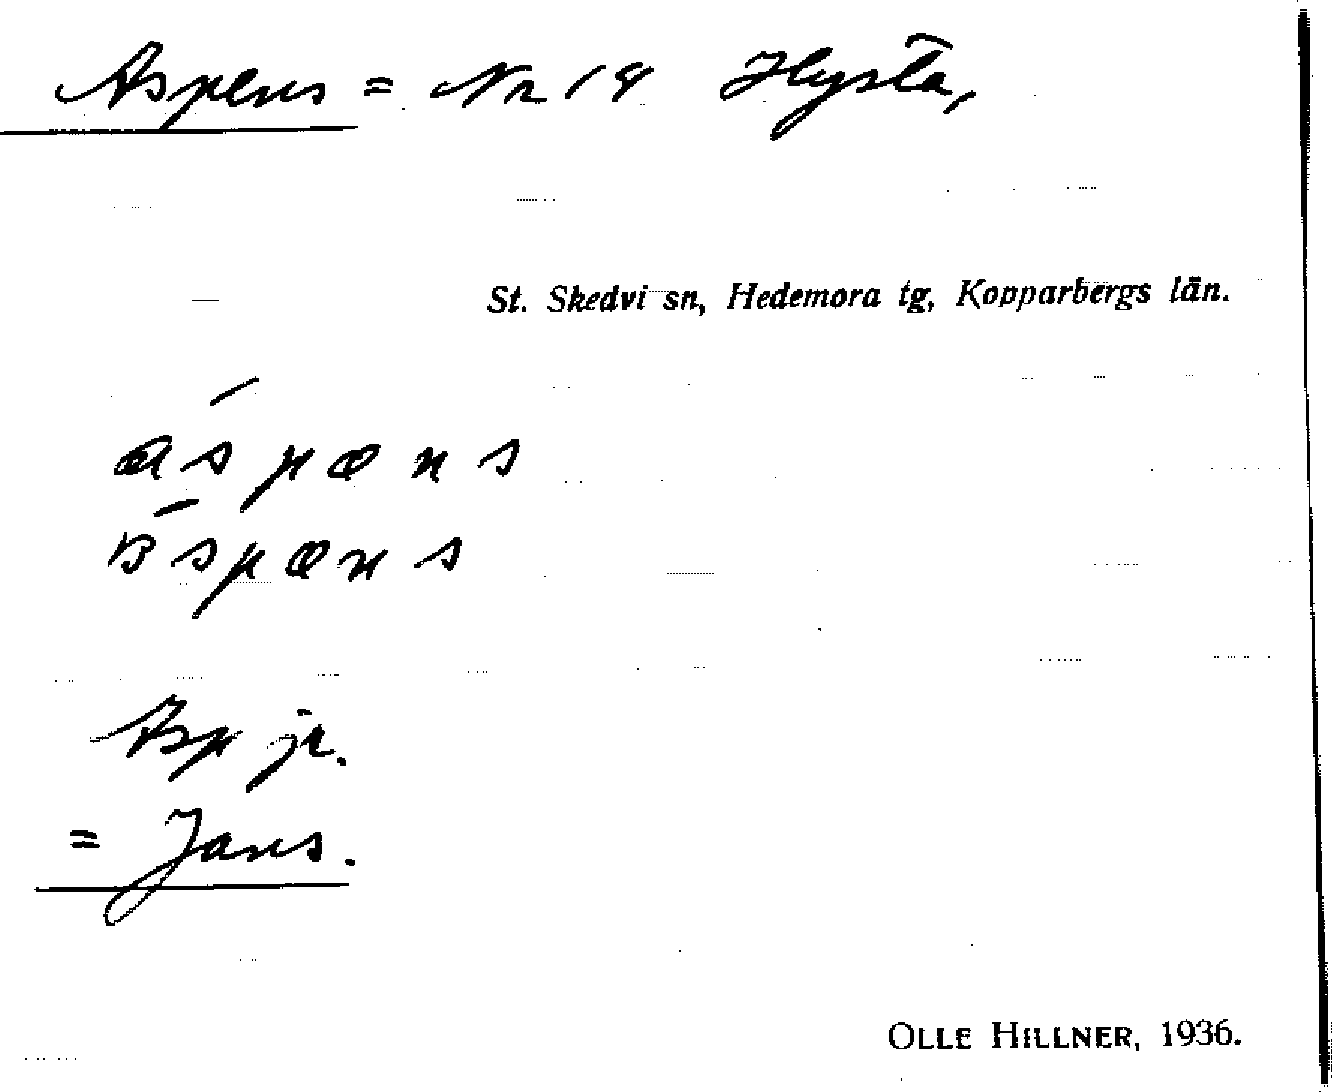 Aspens = Nr 14 Hysta,
St. Skedvi sn, Hedemora tg, Kopparbergs län.
áspæns
Asp jr.
= Jans.
OLLE HILLNER, 1936.